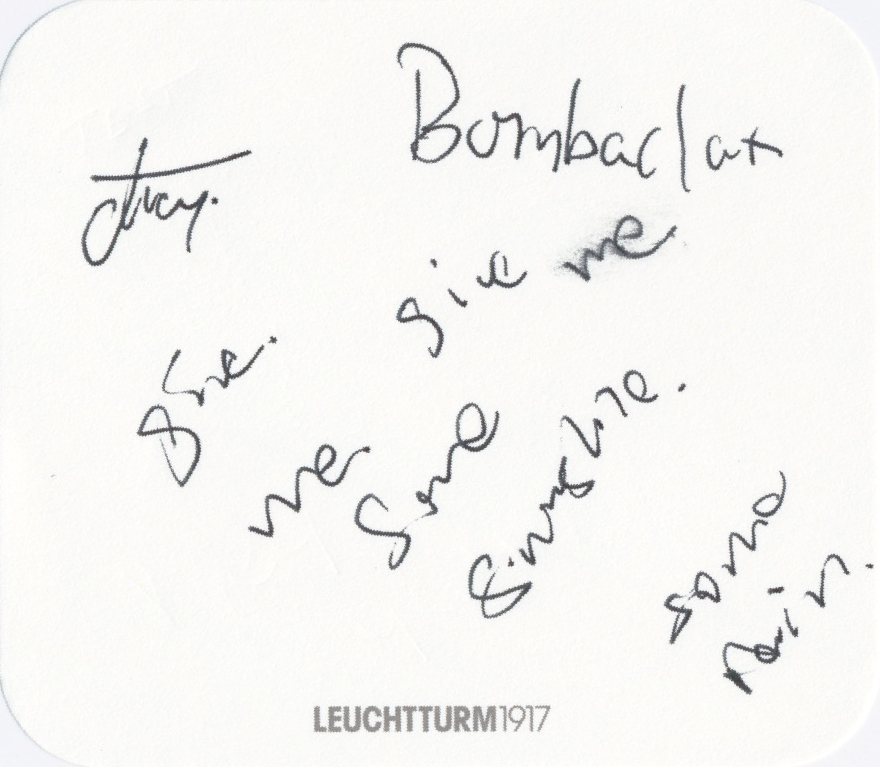 Bombaclat
give me
give
me
some
sunshine.
some
rain.
LEUCHTTURM1917